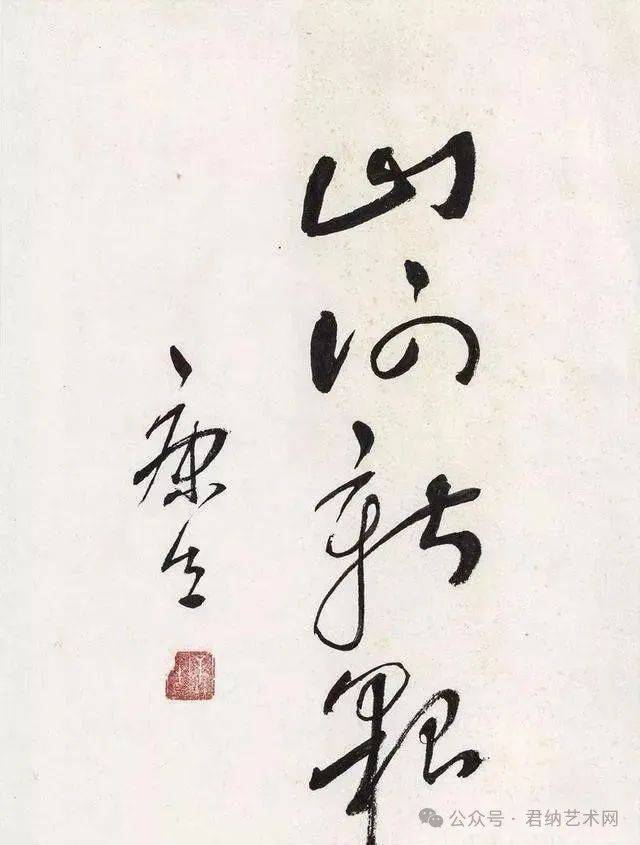 山河新
康生
公众号 · 君纳艺术网